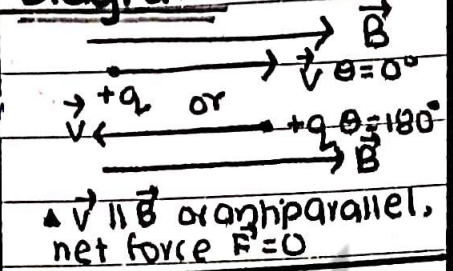 Diagram
B⃗
V⃗ θ=0°
+q or
V⃗ +q θ=180°
B⃗
▲ V⃗ || B⃗ or antiparallel,
net force F⃗=0